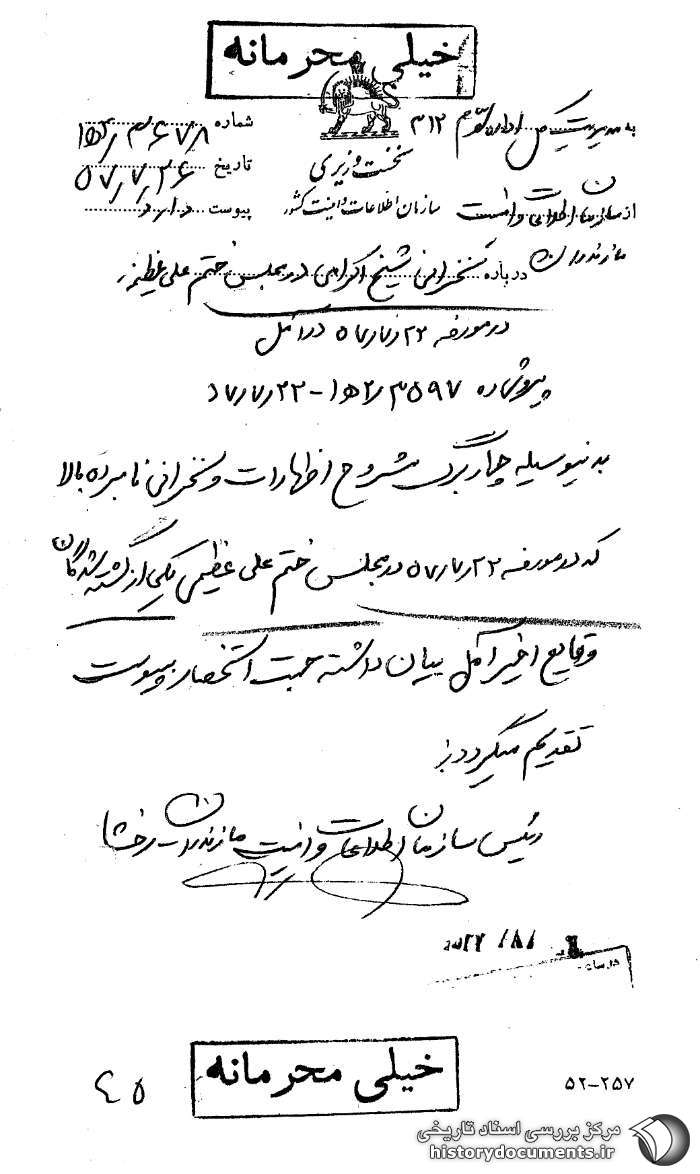 خیلی محرمانه
به مدیریت کل اداره سوم ۳۱۲
شماره
تاریخ ۵۷/۷/۲۶
پیوست دارد
نخست وزیری
سازمان اطلاعات و امنیت کشور
از سازمان اطلاعات و امنیت
مازندران
درباره سخنرانی شیخ اکرامی در مجلس ختم علی عظیمی
در مورخه ۵۷/۷/۲۲ در آمل
پیرو شماره
بدینوسیله چهار برگ مشروح اظهارات و سخنرانی نامبرده بالا
که در مورخه ۵۷/۷/۲۲ در مجلس ختم علی عظیمی یکی از کشته شدگان
وقایع اخیر آمل بیان داشته جهت استحضار به پیوست
تقدیم میگردد
رئیس سازمان اطلاعات و امنیت مازندران
خیلی محرمانه
۵۲-۲۵۷
مرکز بررسی اسناد تاریخی
historydocuments.ir